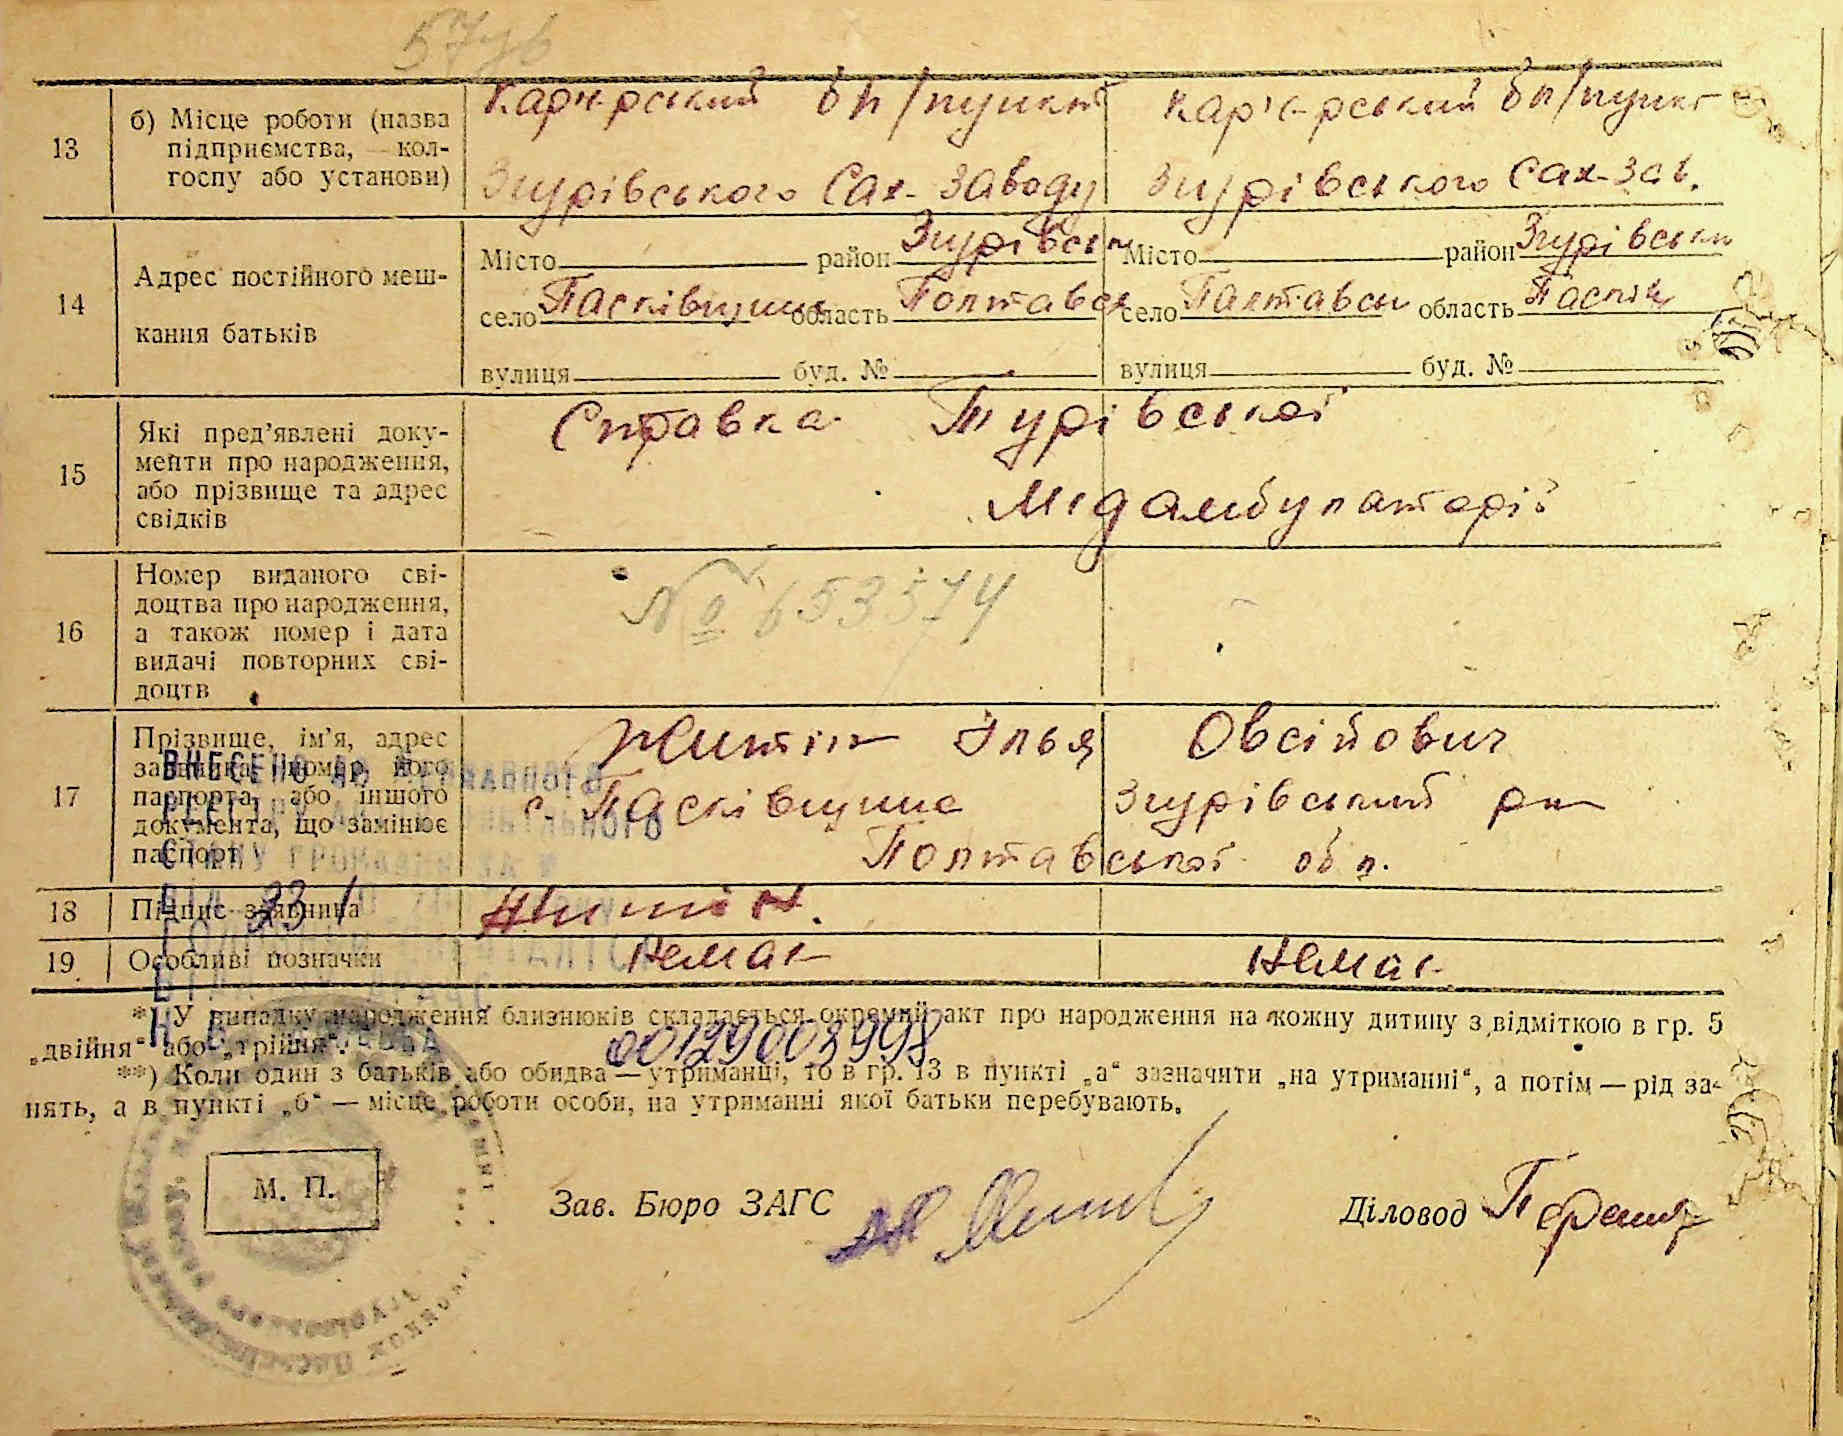 13
б) Місце роботи (назва
підприємства, кол-
госпу або установи)
Кар'єрський бп/пункт
Згурівського Сах-заводу
Кар'єрський бп/пункт
Згурівського Сах-зав.
14
Адрес постійного меш-
кання батьків
Місто район Згурівськ
село Пасківщина область Полтавськ
вулиця буд. №
Місто район Згурівськи
село Полтавськ область Пасків
вулиця буд. №
15
Які пред'явлені доку-
менти про народження,
або прізвище та адрес
свідків
Справка Турівської
Медамбулаторії
16
Номер виданого сві-
доцтва про народження,
а також номер і дата
видачі повторних сві-
доцтв
№ 653574
17
Прізвище, ім'я, адрес
заявника, номер його
паспорта, або іншого
документа, що замінює
паспорт
Житін Ілья Овсійович
с. Пасківщина Згурівський рн
Полтавської обл.
18
Підпис заявника
Житін.
19
Особливі позначки
Немає
Немає
ВНЕСЕНО ДО ДЕРЖАВНОГО
РЕЄСТРУ АКТІВ ЦИВІЛЬНОГО
СТАНУ ГРОМАДЯН ЗА №
00129003998
*) У випадку народження близнюків складається окремий акт про народження на кожну дитину з відміткою в гр. 5
„двійня“ або „трійня“.
**) Коли один з батьків або обидва — утриманці, то в гр. 13 в пункті „а“ зазначити „на утриманні“, а потім — рід за-
нять, а в пункті „б“ — місце роботи особи, на утриманні якої батьки перебувають.
М. П.
Зав. Бюро ЗАГС
Діловод